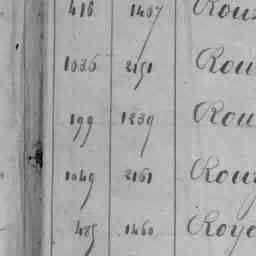 416 1407 Rous
1036 2151 Rou
199 1239 Rou
1049 2161 Rouy
485 1460 Roye